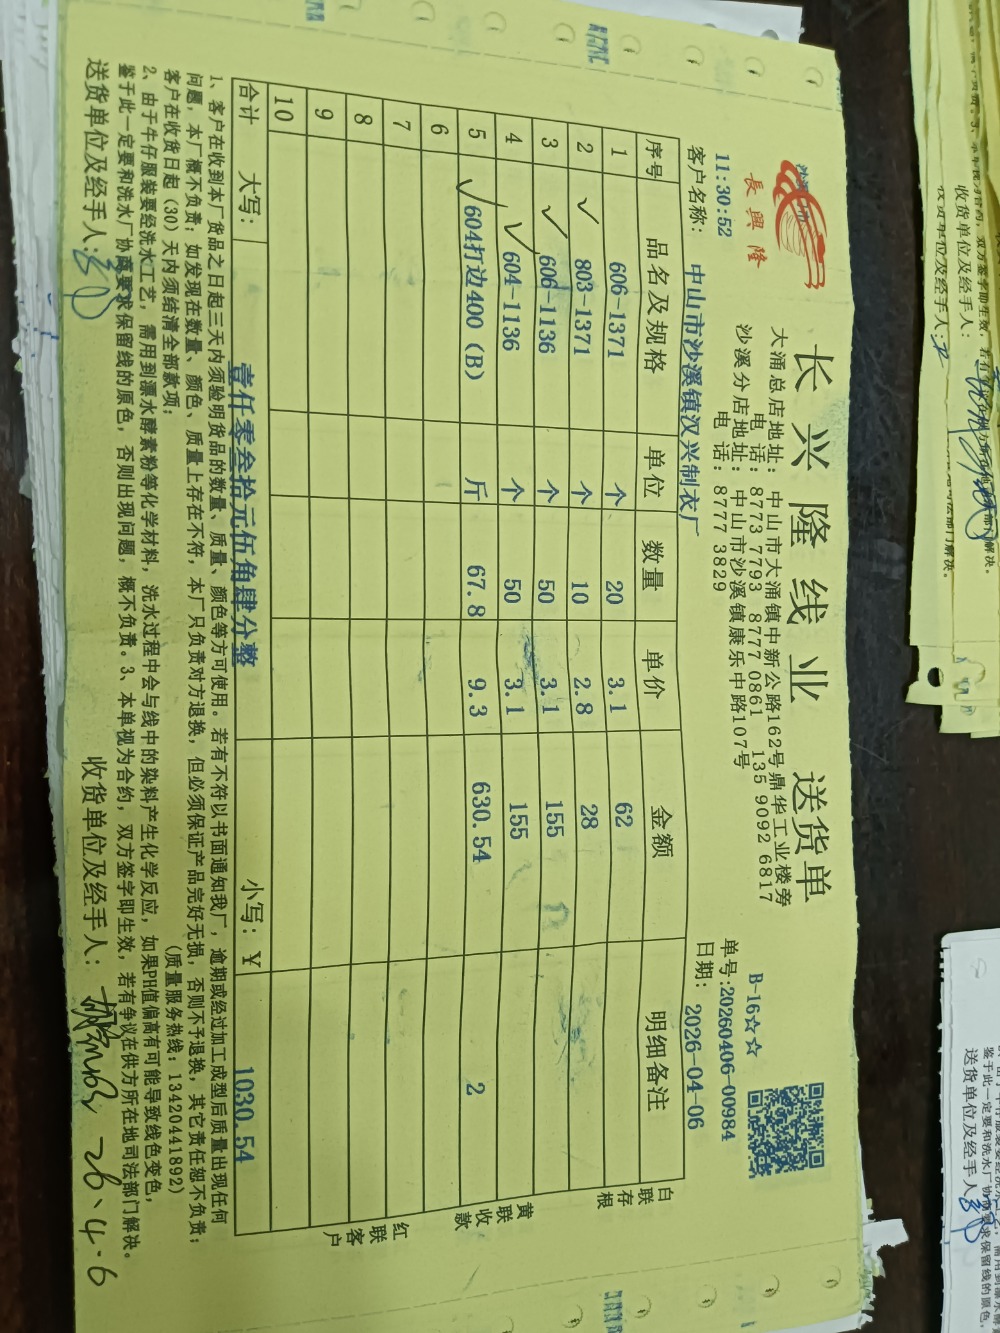 長興隆
长兴隆线业 送货单
B-16☆☆
大涌总店地址：中山市大涌镇中新公路162号鼎华工业楼旁
电 话：8773 7793 8777 0861 135 9092 6817
沙溪分店地址：中山市沙溪镇康乐中路107号
电 话：8777 3829
单号:20260406-00984
11:30:52
日期：2026-04-06
客户名称：中山市沙溪镇汉兴制衣厂
序号 品名及规格 单位 数量 单价 金额 明细备注
1 606-1371 个 20 3.1 62
2 ✓ 803-1371 个 10 2.8 28
3 ✓ 606-1136 个 50 3.1 155
4 ✓ 604-1136 个 50 3.1 155
5 ✓ 604打边400（B) 斤 67.8 9.3 630.54 2
6
7
8
9
10
合计 大写：壹仟零叁拾元伍角肆分整 小写：￥ 1030.54
白联存根
黄联收款
红联客户
1、客户在收到本厂货品之日起三天内须验明货品的数量、质量、颜色等方可使用。若有不符以书面通知我厂，逾期或经过加工成型后质量出现任何
问题，本厂概不负责；如发现在数量、颜色、质量上存在不符，本厂只负责对方退换，但必须保证产品完好无损，否则不予退换，其它责任恕不负责；
客户在收货日起（30）天内须结清全部款项； （质量服务热线：13420441892）
2、由于牛仔服装要经洗水工艺，需用到漂水酵素粉等化学材料，洗水过程中会与线中的染料产生化学反应，如果PH值偏高有可能导致线色变色，
鉴于此一定要和洗水厂协商要求保留线的原色，否则出现问题，概不负责。3、本单视为合约，双方签字即生效，若有争议在供方所在地司法部门解决。
送货单位及经手人：
收货单位及经手人： 26.4.6
收货单位及经手人：
送货单位及经手人